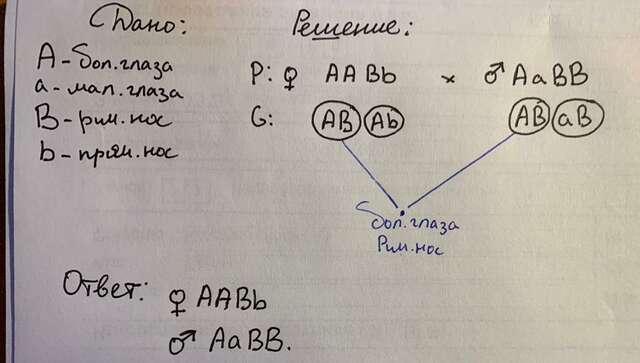 Дано:
А - бол.глаза
а - мал.глаза
В - рим.нос
b - прям.нос
Решение:
P: ♀ AABb × ♂ AaBB
G: AB Ab AB aB
бол.глаза
Рим.нос
Ответ: ♀ AABb
♂ AaBB.